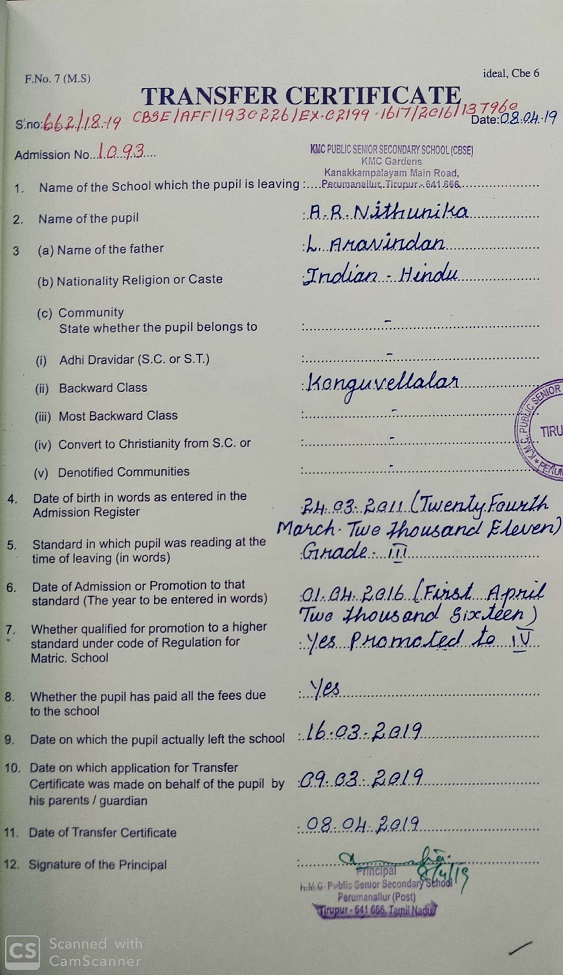 F.No. 7 (M.S) ideal, Cbe 6
TRANSFER CERTIFICATE
S.no: 662/18-19 CBSE/AFF/1930226/EX-02199-1617/2016/137960 Date: 08.04.19
Admission No. 1093
KMC PUBLIC SENIOR SECONDARY SCHOOL (CBSE)
KMC Gardens
Kanakkampalayam Main Road,
1. Name of the School which the pupil is leaving : Perumanallur, Tirupur - 641 666.
2. Name of the pupil : A.R. Nithunika
3 (a) Name of the father : L. Aravindan
(b) Nationality Religion or Caste : Indian - Hindu
(c) Community
State whether the pupil belongs to : -
(i) Adhi Dravidar (S.C. or S.T.) : -
(ii) Backward Class : Konguvellalar
(iii) Most Backward Class : -
(iv) Convert to Christianity from S.C. or : -
(v) Denotified Communities : -
K.M.C. PUBLIC SENIOR
TIRU
PERUM
4. Date of birth in words as entered in the
Admission Register : 24.03.2011 (Twenty Fourth
March. Two thousand Eleven)
5. Standard in which pupil was reading at the
time of leaving (in words) : Grade - III
6. Date of Admission or Promotion to that
standard (The year to be entered in words) : 01.04.2016 (First April
Two thousand Sixteen)
7. Whether qualified for promotion to a higher
standard under code of Regulation for : Yes Promoted to IV
Matric. School
8. Whether the pupil has paid all the fees due : Yes
to the school
9. Date on which the pupil actually left the school : 16.03.2019
10. Date on which application for Transfer
Certificate was made on behalf of the pupil by : 09.03.2019
his parents / guardian
11. Date of Transfer Certificate : 08.04.2019
12. Signature of the Principal :
8/4/19
Principal
K.M.C. Public Senior Secondary School
Perumanallur (Post)
Tirupur - 641 666, Tamil Nadu
CS Scanned with
CamScanner